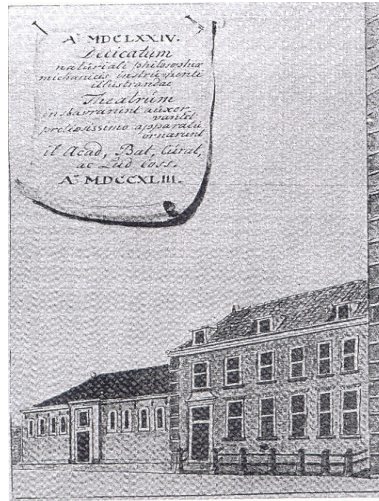 Aº MDCLXXIV.
Dedicatum
naturali philosophiæ
mechanicis instrumentis
illustrandae
Theatrum
instaurarunt auxer
prœtiosissimo apparatu
ornarunt
ill Acad, Bat, Curat,
ac Lud Coss.
Aº MDCCXLIII.